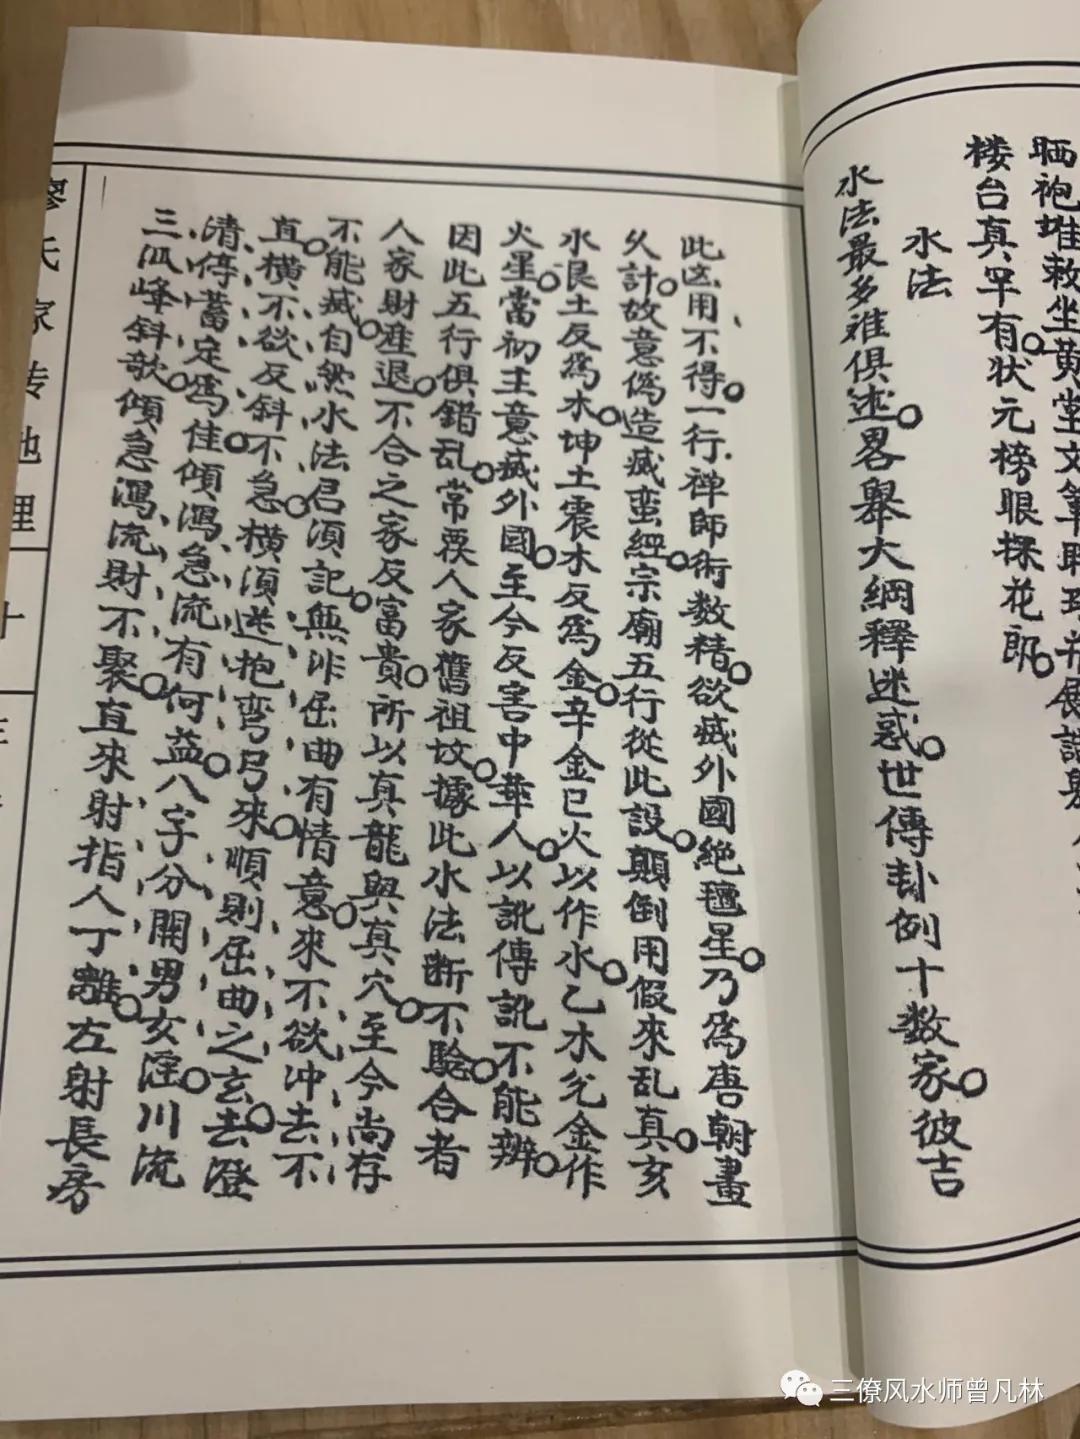 晒袍堆敕坐黄堂文筆
楼台真罕有状元榜眼探花郎
水法
水法最多难俱述畧舉大綱釋迷惑世傳卦例十数家彼吉
此凶用不得一行禅師術数精欲滅外國絶
星乃為唐朝畫
久計故意偽造滅蛮經宗廟五行從此設顛倒用假來乱真亥
水艮土反為木坤土震木反為金辛金巳火以作水乙木兊金作
火星當初主意滅外國至今反害中華人以訛傳訛不能辨
因此五行俱錯乱常叹人家舊祖坟據此水法断不騐合者
人家財産退不合之家反富貴所以真龍與真穴至今尚存
不能滅自然水法君須記無非屈曲有情意來不欲冲去不
直横不欲反斜不急横須遶抱弯弓來順則屈曲之玄去澄
清停蓄定為佳傾瀉急流有何益八字分開男女淫川流
三瓜峰斜歌傾急瀉流財不聚直來射指人丁離左射長房
廖氏家传地理
十
三僚风水师曾凡林